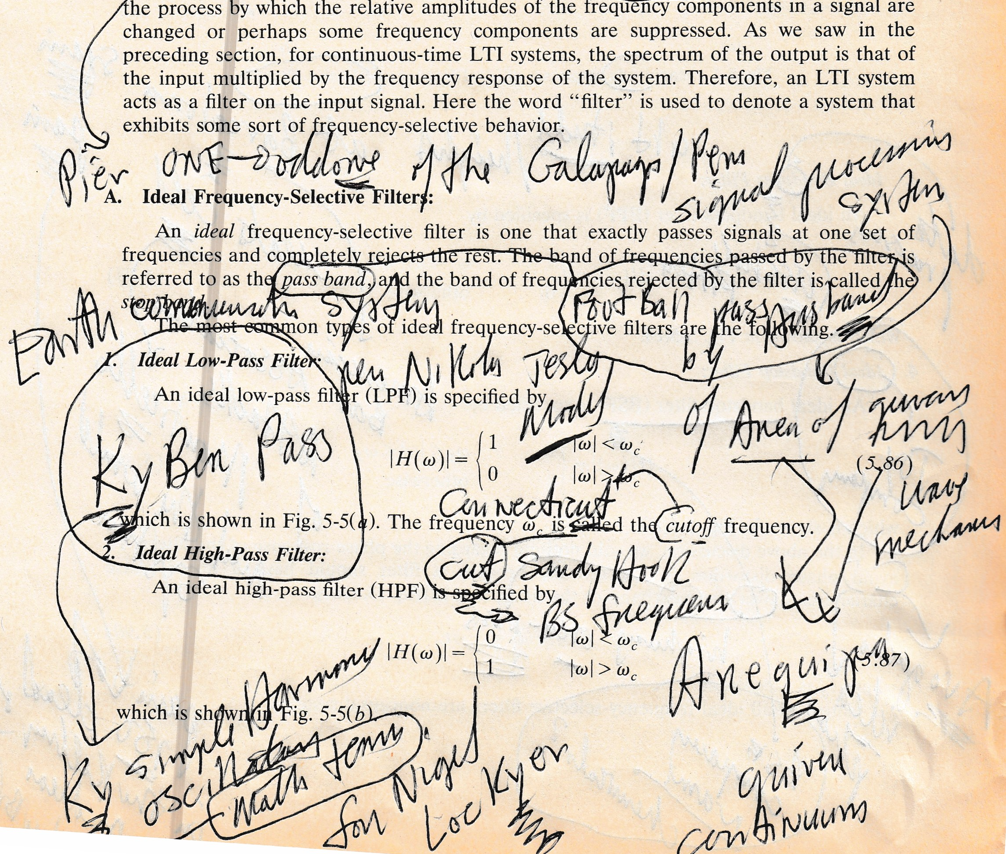 the process by which the relative amplitudes of the frequency components in a signal are
changed or perhaps some frequency components are suppressed. As we saw in the
preceding section, for continuous-time LTI systems, the spectrum of the output is that of
the input multiplied by the frequency response of the system. Therefore, an LTI system
acts as a filter on the input signal. Here the word “filter” is used to denote a system that
exhibits some sort of frequency-selective behavior.
Pier ONE of the Galapags/Pem
signal processing
system
A. Ideal Frequency-Selective Filters:
An ideal frequency-selective filter is one that exactly passes signals at one set of
frequencies and completely rejects the rest. The band of frequencies passed by the filter is
referred to as the pass band, and the band of frequencies rejected by the filter is called the
stop band.
Earth system
Foot Ball pass band
by
The most common types of ideal frequency-selective filters are the following.
1. Ideal Low-Pass Filter:
per Nikola Tesla
An ideal low-pass filter (LPF) is specified by
Ky Ben Pass
of Area of
|H(ω)| = { 1 |ω| < ωc
0 |ω| > ωc (5.86)
wave
Connecticut
which is shown in Fig. 5-5(a). The frequency ωc is called the cutoff frequency.
2. Ideal High-Pass Filter:
cut Sandy Hook
An ideal high-pass filter (HPF) is specified by
BS
|H(ω)| = { 0 |ω| < ωc
1 |ω| > ωc (5.87)
Arequipa
which is shown in Fig. 5-5(b).
Ky simple Harmony
Math
for Nigel
LocKyer
quiver
continuums